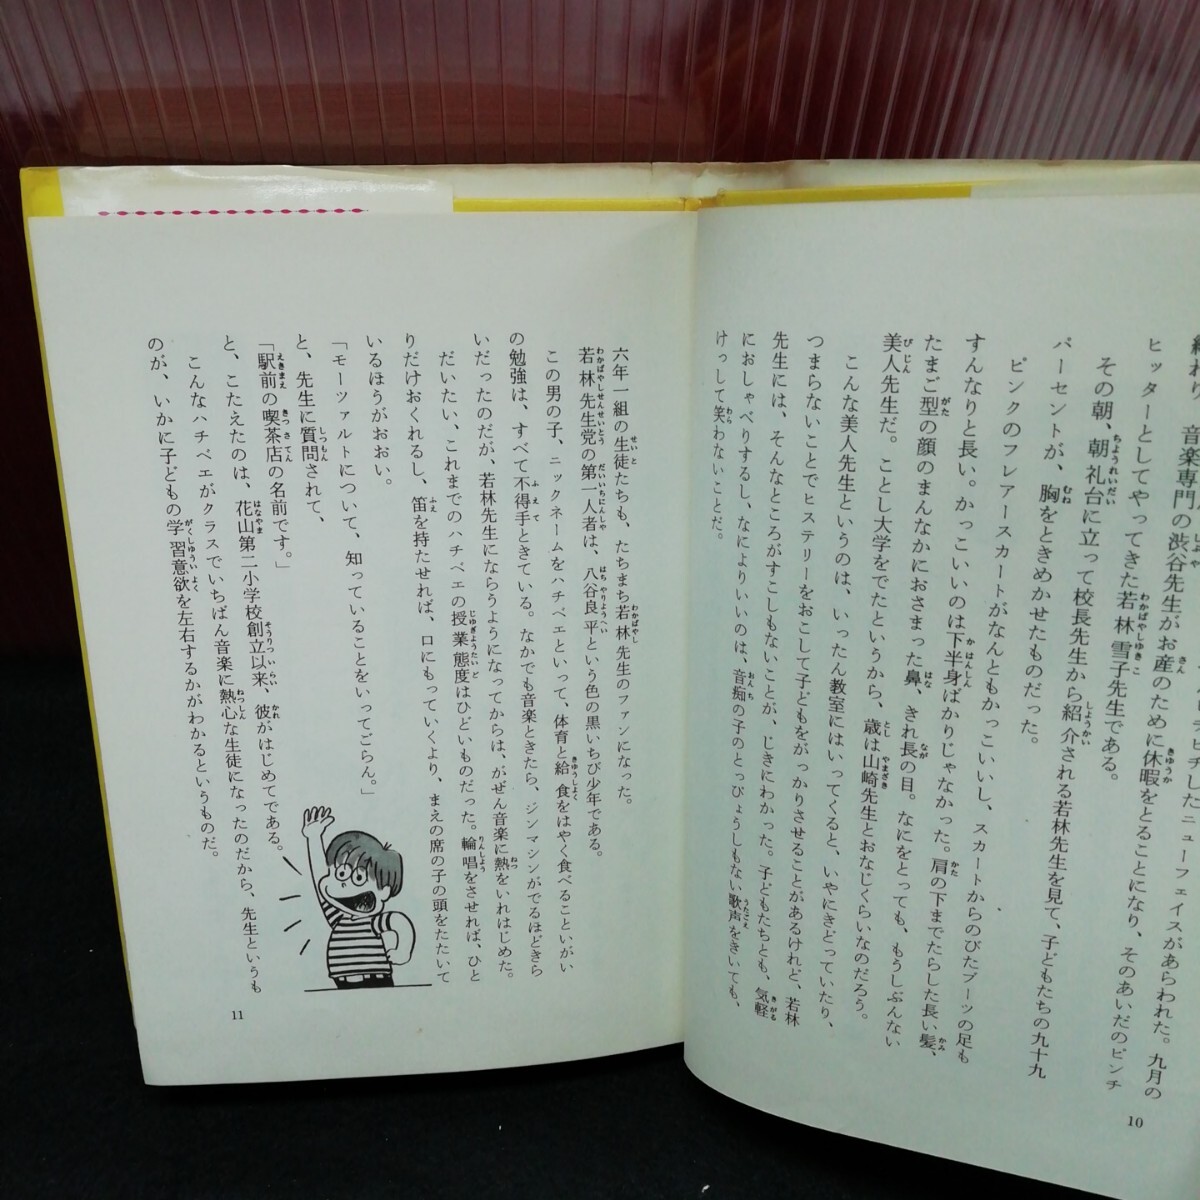 音楽専門の渋谷先生がお産のために休暇をとることになり、そのあいだのピンチ
ヒッターとしてやってきた若林雪子先生である。
その朝、朝礼台に立って校長先生から紹介される若林先生を見て、子どもたちの九十九
パーセントが、胸をときめかせたものだった。
ピンクのフレアースカートがなんともかっこいいし、スカートからのびたブーツの足も
すんなりと長い。かっこいいのは下半身ばかりじゃなかった。肩の下までたらした長い髪、
たまご型の顔のまんなかにおさまった鼻、きれ長の目。なにをとっても、もうしぶんない
美人先生だ。ことし大学をでたというから、歳は山崎先生とおなじくらいなのだろう。
こんな美人先生というのは、いったん教室にはいってくると、いやにきどっていたり、
つまらないことでヒステリーをおこして子どもをがっかりさせることがあるけれど、若林
先生には、そんなところがすこしもないことが、じきにわかった。子どもたちとも、気軽
におしゃべりするし、なによりいいのは、音痴の子のとっぴょうしもない歌声をきいても、
けっして笑わないことだ。
10
六年一組の生徒たちも、たちまち若林先生のファンになった。
若林先生党の第一人者は、八谷良平という色の黒いちび少年である。
この男の子、ニックネームをハチベエといって、体育と給食をはやく食べることいがい
の勉強は、すべて不得手ときている。なかでも音楽ときたら、ジンマシンがでるほどきら
いだったのだが、若林先生にならうようになってからは、がぜん音楽に熱をいれはじめた。
だいたい、これまでのハチベエの授業態度はひどいものだった。輪唱をさせれば、ひと
りだけおくれるし、笛を持たせれば、口にもっていくより、まえの席の子の頭をたたいて
いるほうがおおい。
「モーツァルトについて、知っていることをいってごらん。」
と、先生に質問されて、
「駅前の喫茶店の名前です。」
と、こたえたのは、花山第二小学校創立以来、彼がはじめてである。
こんなハチベエがクラスでいちばん音楽に熱心な生徒になったのだから、先生というも
のが、いかに子どもの学習意欲を左右するかがわかるというものだ。
11